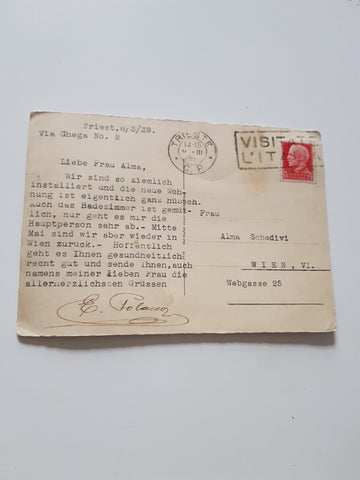 Triest, 8/3/39.
Via Ghega No. 2
Liebe Frau Alma,
Wir sind so ziemlich
installiert und die neue Woh-
nung ist eigentlich ganz hübsch.
Auch das Badezimmer ist gemüt-
lich, nur geht es mir die
Hauptperson sehr ab.- Mitte
Mai sind wir aber wieder in
Wien zurück.- Hoffentlich
geht es Ihnen gesundheitlich
recht gut und sende Ihnen,auch
namens meiner lieben Frau die
allerherzlichsten Grüssen
E.
TRIESTE
14-15
III
C.P.
VISIT
L'IT
Frau
Alma Schedivi
WIEN, VI.
Webgasse 25